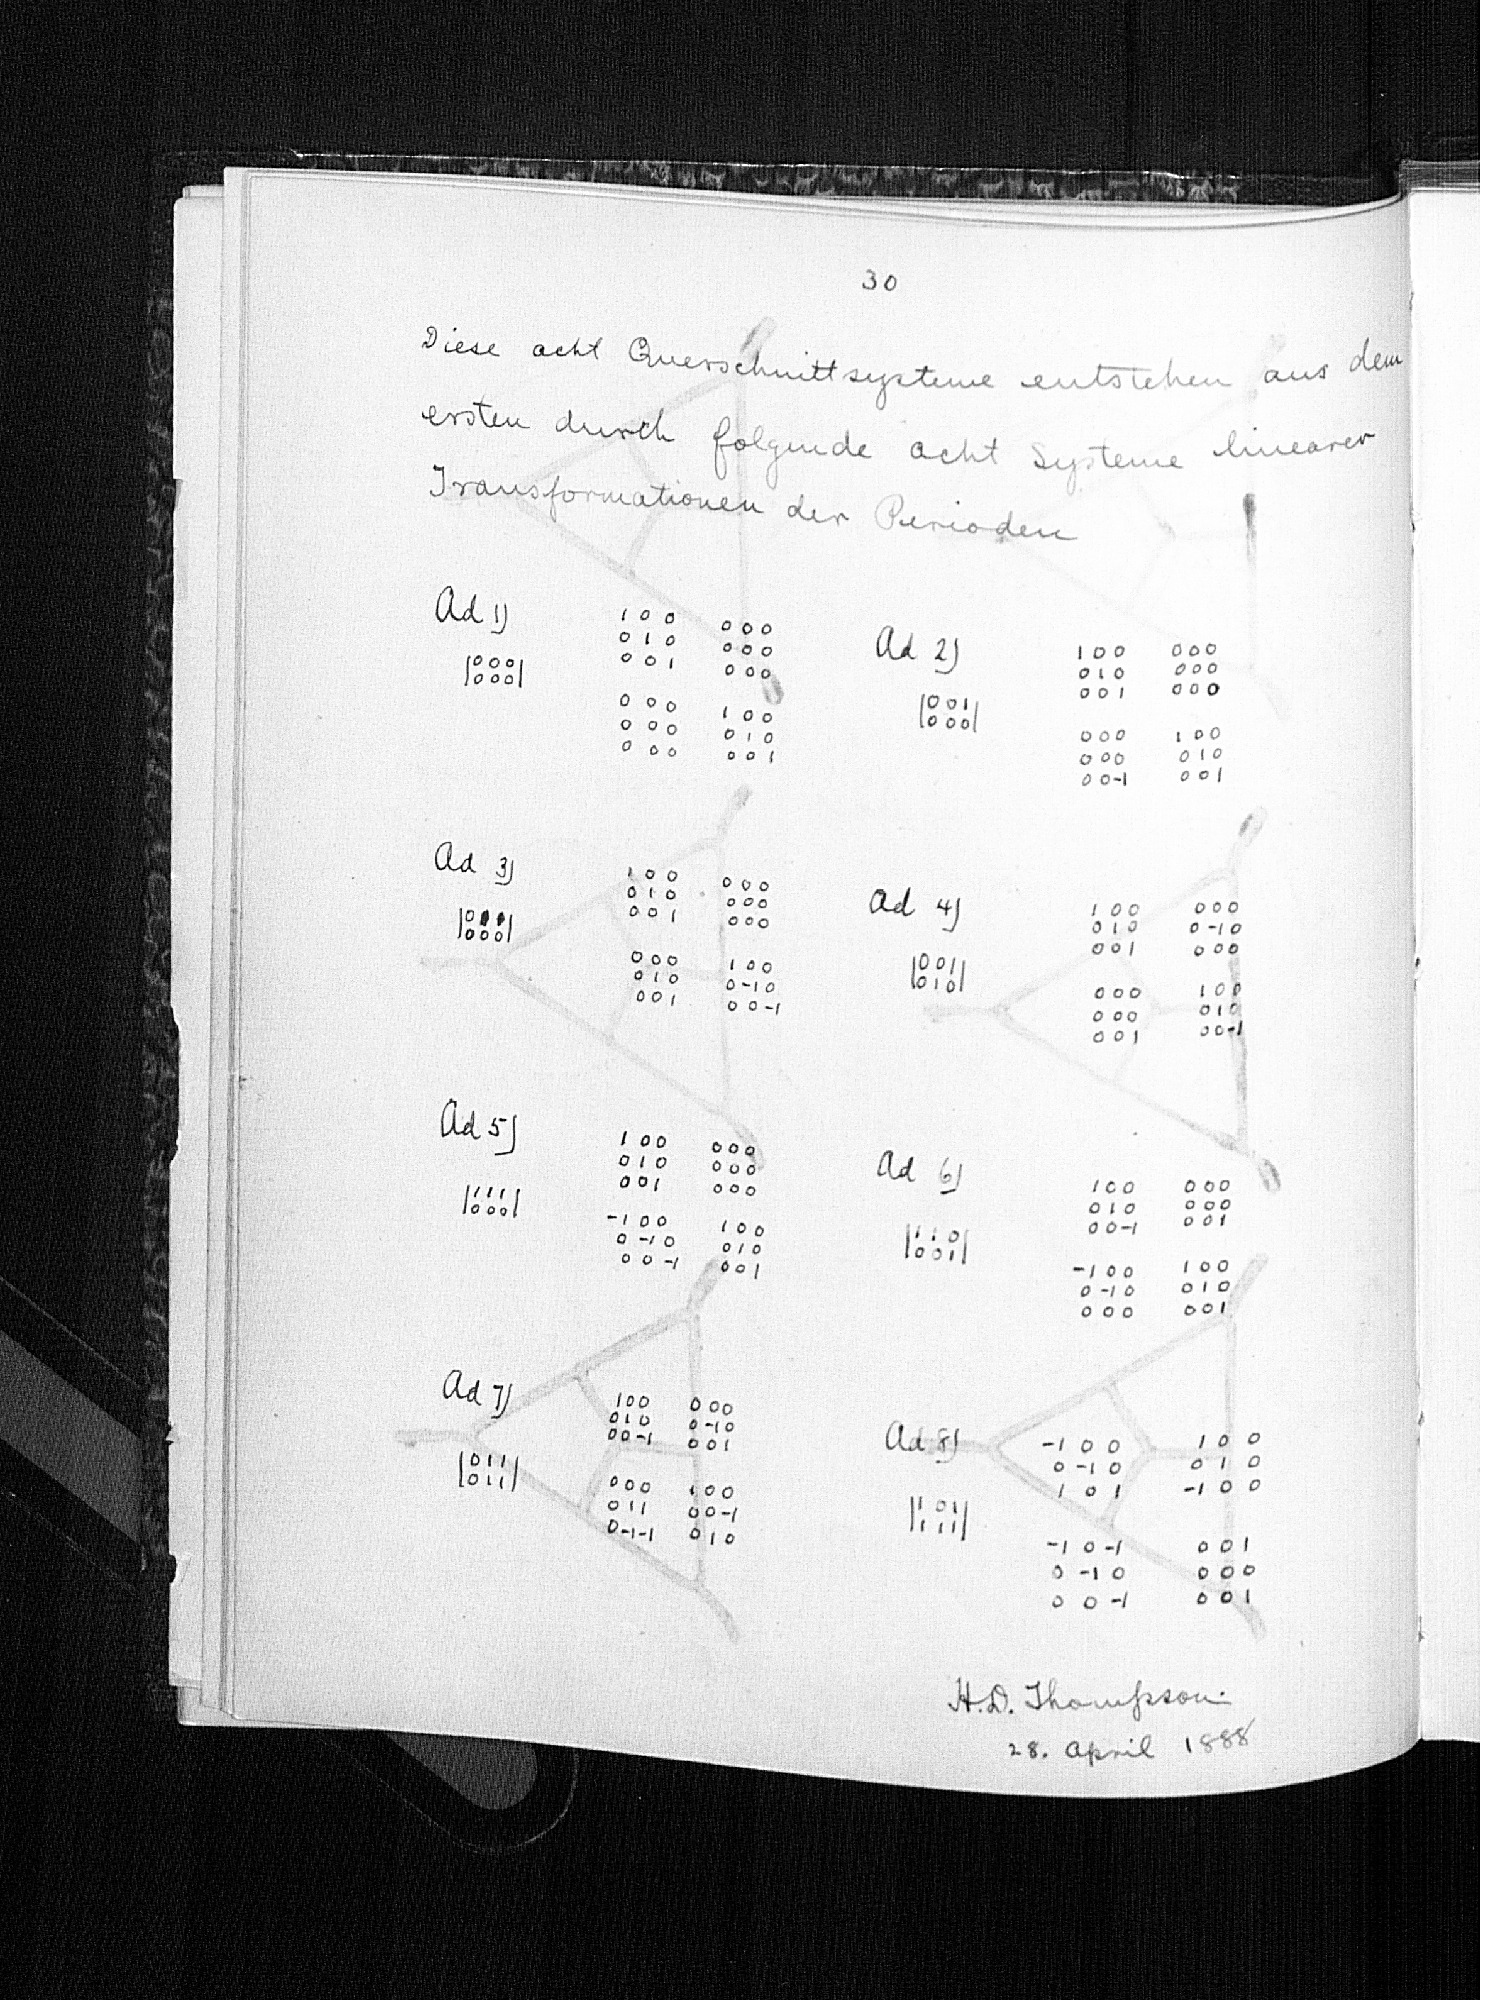 30
Diese acht Querschnittsysteme entstehen aus dem
ersten durch folgende acht Systeme linearer
Transformationen der Perioden
Ad 1)
|000|
|000|
1 0 0 0 0 0
0 1 0 0 0 0
0 0 1 0 0 0
0 0 0 1 0 0
0 0 0 0 1 0
0 0 0 0 0 1
Ad 2)
|001|
|000|
1 0 0 0 0 0
0 1 0 0 0 0
0 0 1 0 0 0
0 0 0 1 0 0
0 0 0 0 1 0
0 0 -1 0 0 1
Ad 3)
|0
|000|
1 0 0 0 0 0
0 1 0 0 0 0
0 0 1 0 0 0
0 0 0 1 0 0
0 1 0 0 -1 0
0 0 1 0 0 -1
Ad 4)
|001|
|010|
1 0 0 0 0 0
0 1 0 0 -1 0
0 0 1 0 0 0
0 0 0 1 0 0
0 0 0 0 1 0
0 0 1 0 0 -1
Ad 5)
|111|
|000|
1 0 0 0 0 0
0 1 0 0 0 0
0 0 1 0 0 0
-1 0 0 1 0 0
0 -1 0 0 1 0
0 0 -1 0 0 1
Ad 6)
|110|
|001|
1 0 0 0 0 0
0 1 0 0 0 0
0 0 -1 0 0 1
-1 0 0 1 0 0
0 -1 0 0 1 0
0 0 0 0 0 1
Ad 7)
|011|
|011|
1 0 0 0 0 0
0 1 0 0 -1 0
0 0 -1 0 0 1
0 0 0 1 0 0
0 1 1 0 0 -1
0 -1 -1 0 1 0
Ad 8)
|101|
|111|
-1 0 0 1 0 0
0 -1 0 0 1 0
1 0 1 -1 0 0
-1 0 -1 0 0 1
0 -1 0 0 0 0
0 0 -1 0 0 1
H.D. Thompson.
28. April 1888